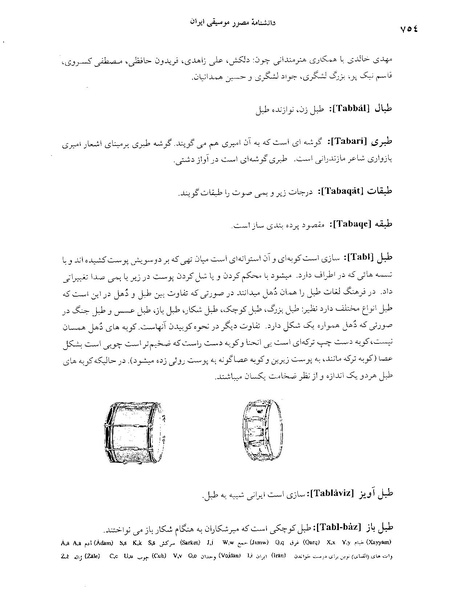 دانشنامهٔ مصور موسیقی ایران
۷۵٤
مهدی خالدی با همکاری هنرمندانی چون: دلکش، علی زاهدی، فریدون حافظی، مصطفی کسروی،
قاسم نیک پور، بزرگ لشگری، جواد لشگری و حسین همدانیان.
طبال [Tabbál]: طبل زن، نوازنده طبل
طبری [Tabari]: گوشه ای است که به آن امیری هم می گویند. گوشه طبری برمبنای اشعار امیری
پازواری شاعر مازندرانی است. طبری گوشه‌ای است در آواز دشتی.
طبقات [Tabaqát]: درجات زیر و بمی صوت را طبقات گویند.
طبقه [Tabaqe]: مقصود پرده بندی ساز است.
طبل [Tabl]: سازی است کوبه‌ای و آن استوانه‌ای است میان تهی که بر دوسویش پوست کشیده اند و با
تسمه هائی که در اطراف دارد. میشود با محکم کردن و یا شل کردن پوست در زیر یا بمی صدا تغییراتی
داد. در فرهنگ لغات طبل را همان دُهل میدانند در صورتی که تفاوت بین طبل و دُهل در این است که
طبل انواع مختلف دارد نظیر: طبل بزرگ، طبل کوچک، طبل شکار، طبل باز، طبل عسس و طبل جنگ در
صورتی که دُهل همواره یک شکل دارد. تفاوت دیگر در نحوه کوبیدن آنهاست. کوبه های دُهل همسان
نیست، کوبه دست چپ ترکه‌ای است بی انحنا و کوبه دست راست که ضخیم‌تر است چوبی است بشکل
عصا (کوبه ترکه مانند، به پوست زیرین و کوبه عصاگونه به پوست روئی زده میشود). در حالیکه کوبه های
طبل هردو یک اندازه و از نظر ضخامت یکسان میباشند.
طبل آویز [Tabláviz]: سازی است ایرانی شبیه به طبل.
طبل باز [Tabl-báz]: طبل کوچکی است که میرشکاران به هنگام شکار باز می نواختند.